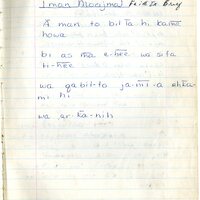 Iman Moojmal
Ā man to bil lā hi kamā
howa
bi as mā e-hee wa sifa
ti-hee
wa qa bil-to ja-mi-a ehkā-
mi hi
wa ar-kā-nih